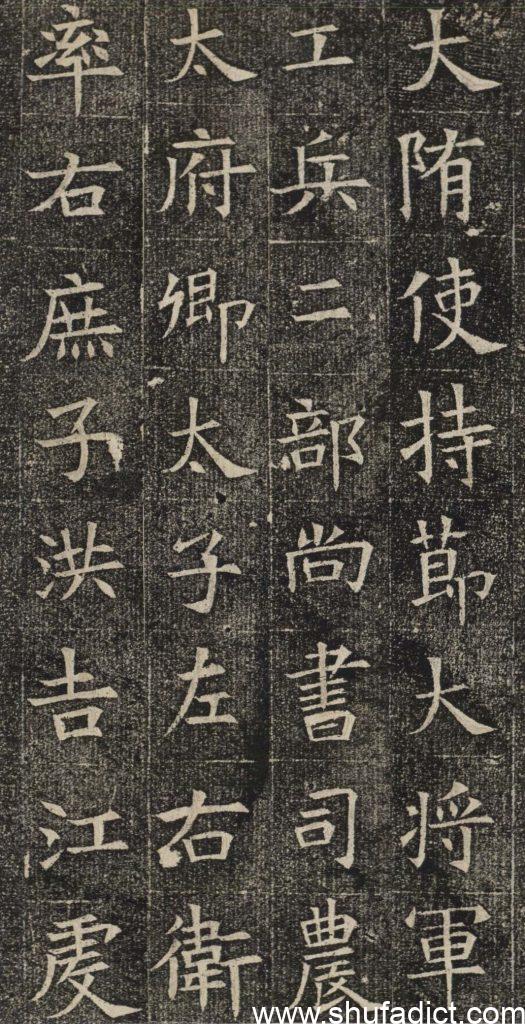 大隋使持節大将軍
工兵二部尚書司農
太府卿太子左右衛
率右庶子洪吉江虔
www.shufadict.com